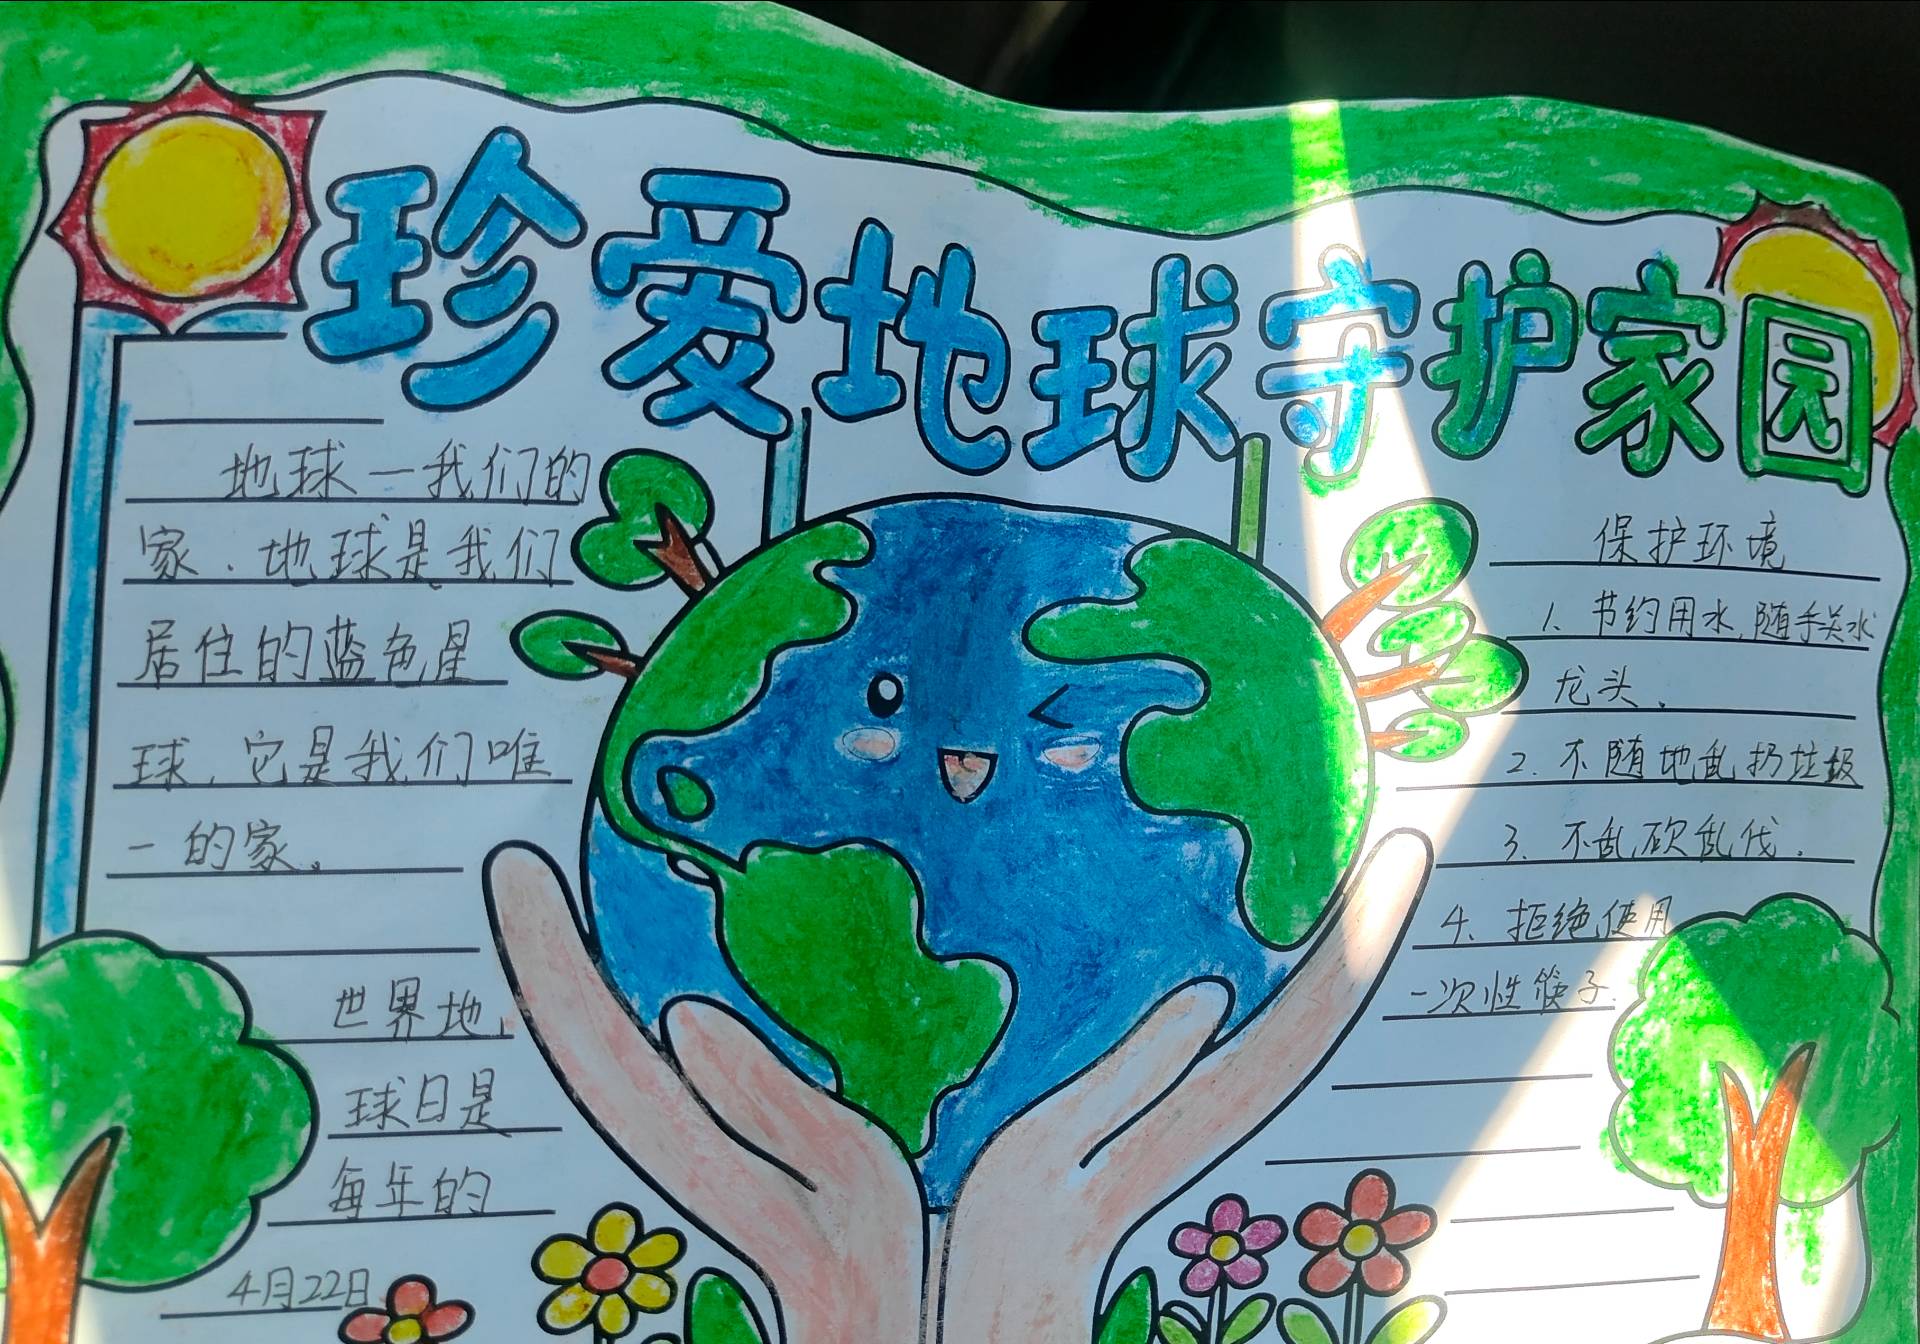 珍爱地球守护家园
地球一我们的
家.地球是我们
居住的蓝色星
球,它是我们唯
一的家。
世界地
球日是
每年的
4月22日
保护环境
1.节约用水,随手关水
龙头.
2.不随地乱扔垃圾
3.不乱砍乱伐.
4.拒绝使用
一次性筷子.